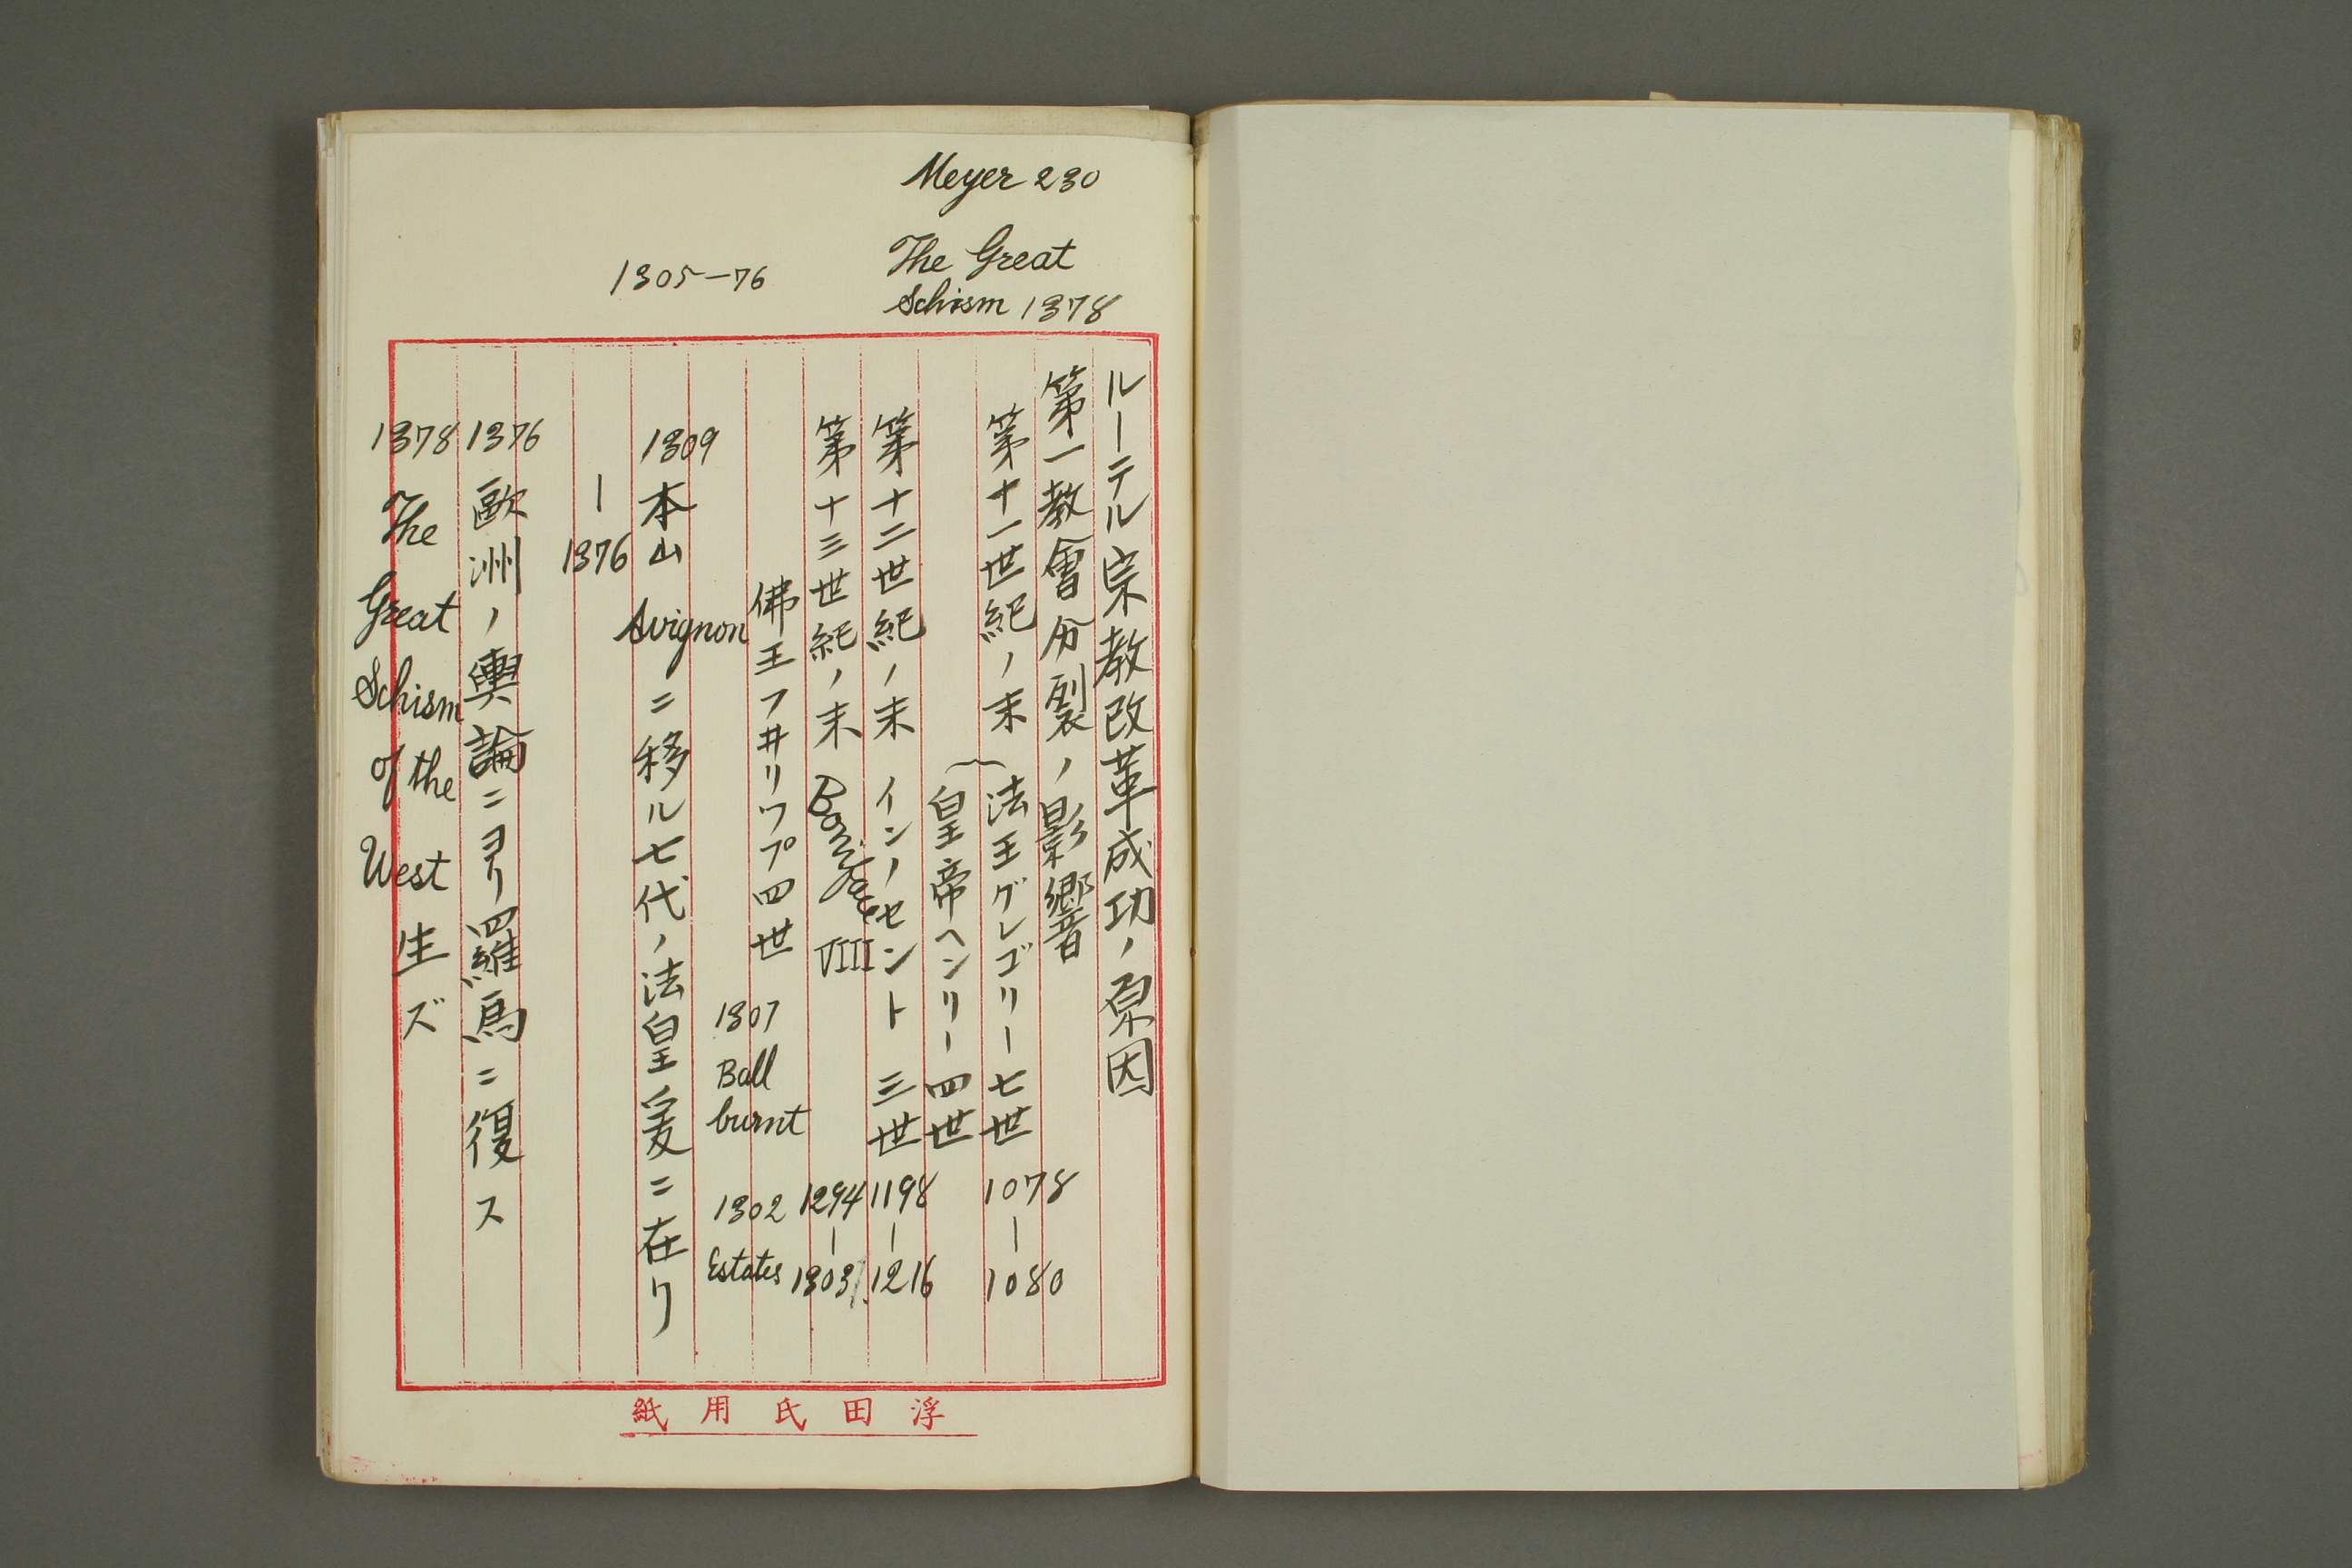 Meyer 230
The Great
Schism 1378
1305—76
ルーテル宗教改革成功ノ原因
第一教會分裂ノ影響
第十一世紀ノ末 法王グレゴリー七世 1078—1080
皇帝ヘンリー四世
第十二世紀ノ末 インノセント 三世 1198—1216
第十三世紀ノ末 Boniface VIII 1294—1303
佛王フ井リップ四世
1307
Ball
burnt
1302
Estates
1309 本山 Avignon ニ移ル七代ノ法皇爰ニ在リ
—1376
1376 歐洲ノ輿論ニヨリ羅馬ニ復ス
1378 The Great Schism of the West 生ズ
浮田氏用紙